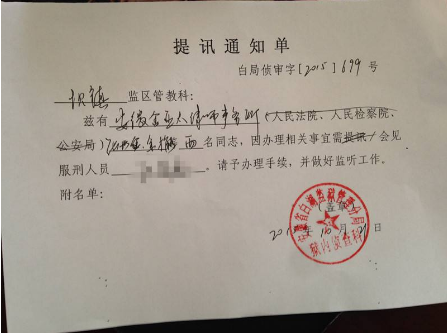 提讯通知单
白局侦审字[2015]699号
监区管教科：
兹有安徽金亚太律师事务所（人民法院、人民检察院、
公安局）两名同志，因办理相关事宜需提讯/会见
服刑人员，请予办理手续，并做好监听工作。
附名单：
（盖章）
安徽省白湖监狱管理分局
狱内侦查科
2015年10月21日